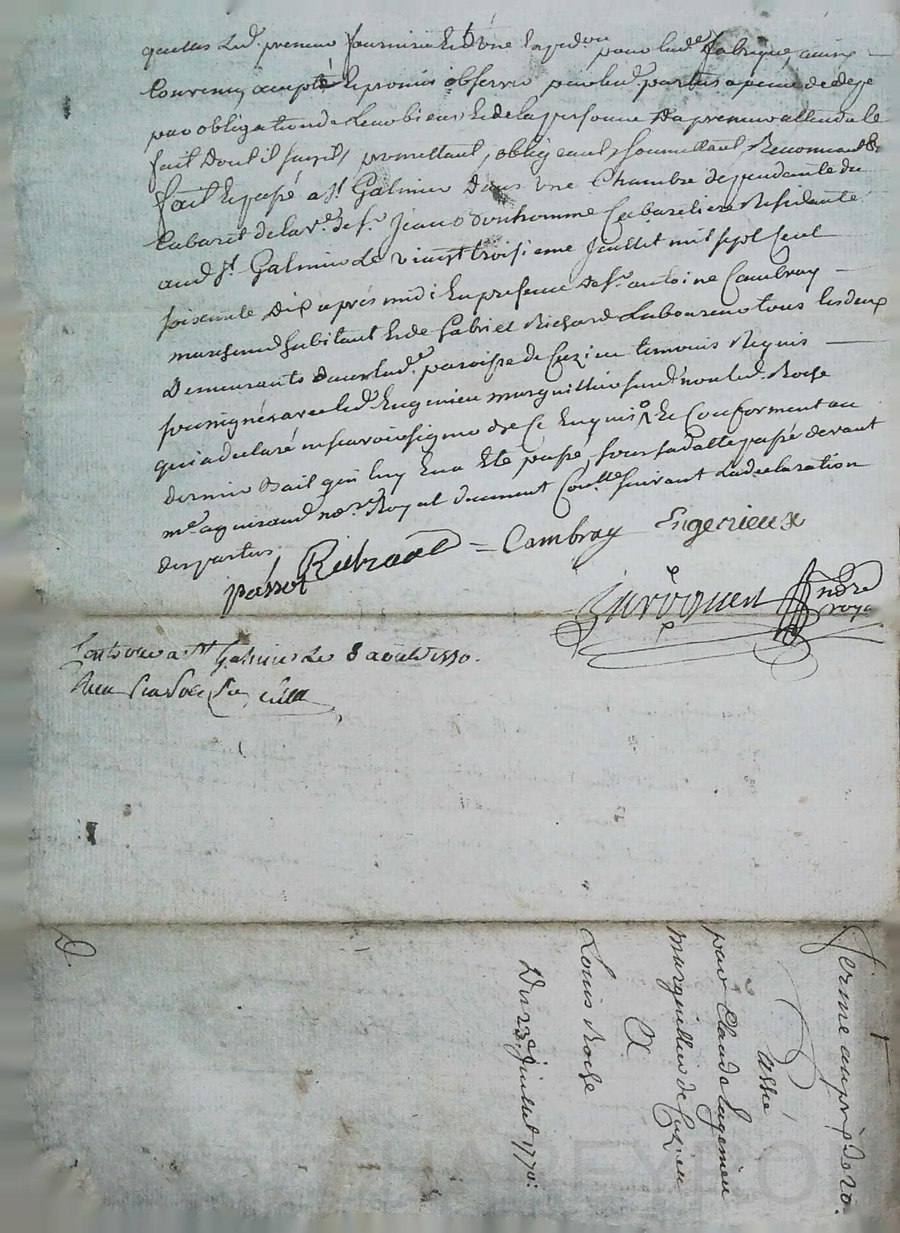 quelles Lud. preneur fournira Et une Expedon pour lad.e fabrique, ainsy
Convenu, accepté Et promis observer par lesd. parties a peine de depe
par obligation de Leurs biens Et de la personne du preneur attendu le
fait dont il s'agit, promettant, obligeant, soumettant, Renonceant &
fait Et passé a St. Galmier Dans une Chambre dependante du
Cabaret de la ve. de Sr. Jean Bonhomme Cabaretiere Residante
aud St. Galmier Le vingt troisieme Juillet mil sept Cent
soixante Dix après midi En presence de Sr. antoine Cambray
marchand habitant Et de Gabriel Richard Laboureur tous les deux
Demeurants dans lad.e paroisse de Cuzieu temoins Requis
soussignés avec led. Eugenieu marguillier sus.d non led. Roche
qui a declaré ne scavoir signer de ce Enquis Et Conforment au
dernier Bail qui luy En a Eté passé sous sa datte passé devant
me. aguiraud nore. Royal duement Coutlle suivant La declaration
des parties
passot Richard = Cambray Eugenieux
ndre
roya
Controlé a St Galmier Le 8 aoust 1770.
ferme au prix de 20.
passé
par Claude Eugenieu
marguillier de Cuzieu
A
Louis Roche
Du 23e. Juillet 1770.
D.